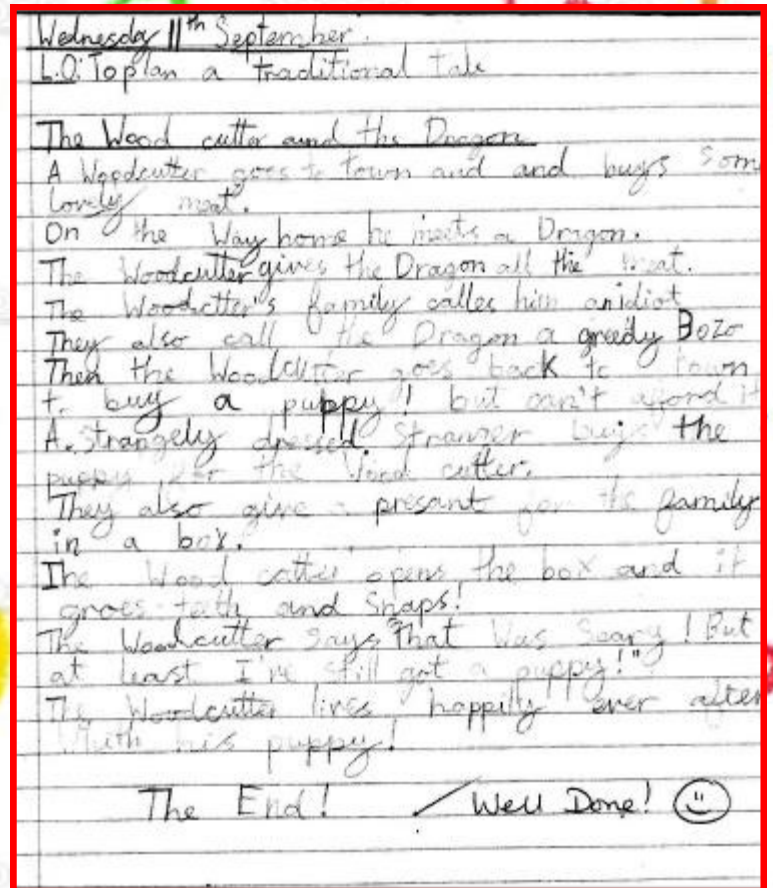 Wednesday 11th September.
L.O: To plan a traditional tale
The Wood cutter and the Dragon
A Woodcutter goes to town and and buys som
lovely meat.
On the Way home he meets a Dragon.
The Woodcutter gives the Dragon all the meat.
The Woodctter's family calles him an idiot
They also call the Dragon a greedy Bozo
Then the Woodcutter goes back to town
to buy a puppy! but can't afford it
A. Strangely dressed. Stranger buys the
puppy for the Wood cutter.
They also give a presant for the family
in a box.
The Wood cutter opens the box and it
groes teeth and Snaps!
The Woodcutter says "That Was Scary! But
at least I've still got a puppy!"
The Woodcutter lives happily ever after
Whith his puppy!
The End! / Well Done!